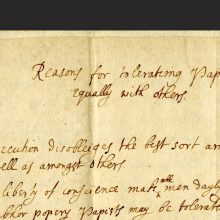 Reasons for tolerateing Papi
equally with others.
secution disobleiges the best sort am
ell as amongst others.
liberty of conscience make all men dayly
abhor popery Papists may be tolerat